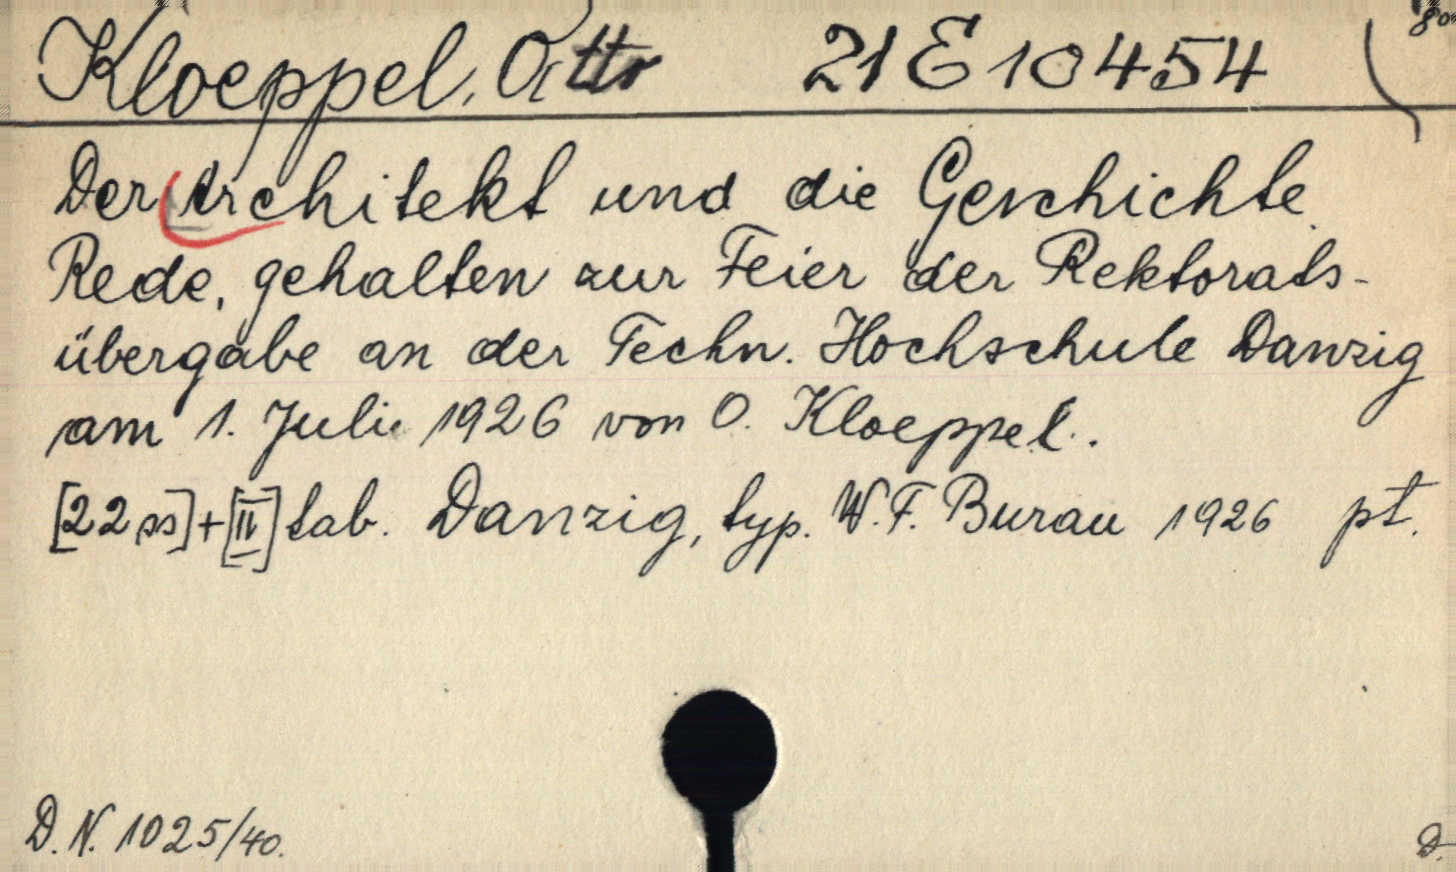 Kloeppel, Otto 21 E 10454 8o
Der Architekt und die Geschichte
Rede, gehalten zur Feier der Rektorats-
übergabe an der Techn. Hochschule Danzig
am 1. Juli 1926 von O. Kloeppel.
[22 ss]+[II] tab. Danzig, typ. W. F. Burau 1926 pt.
D. N. 1025/40. D.